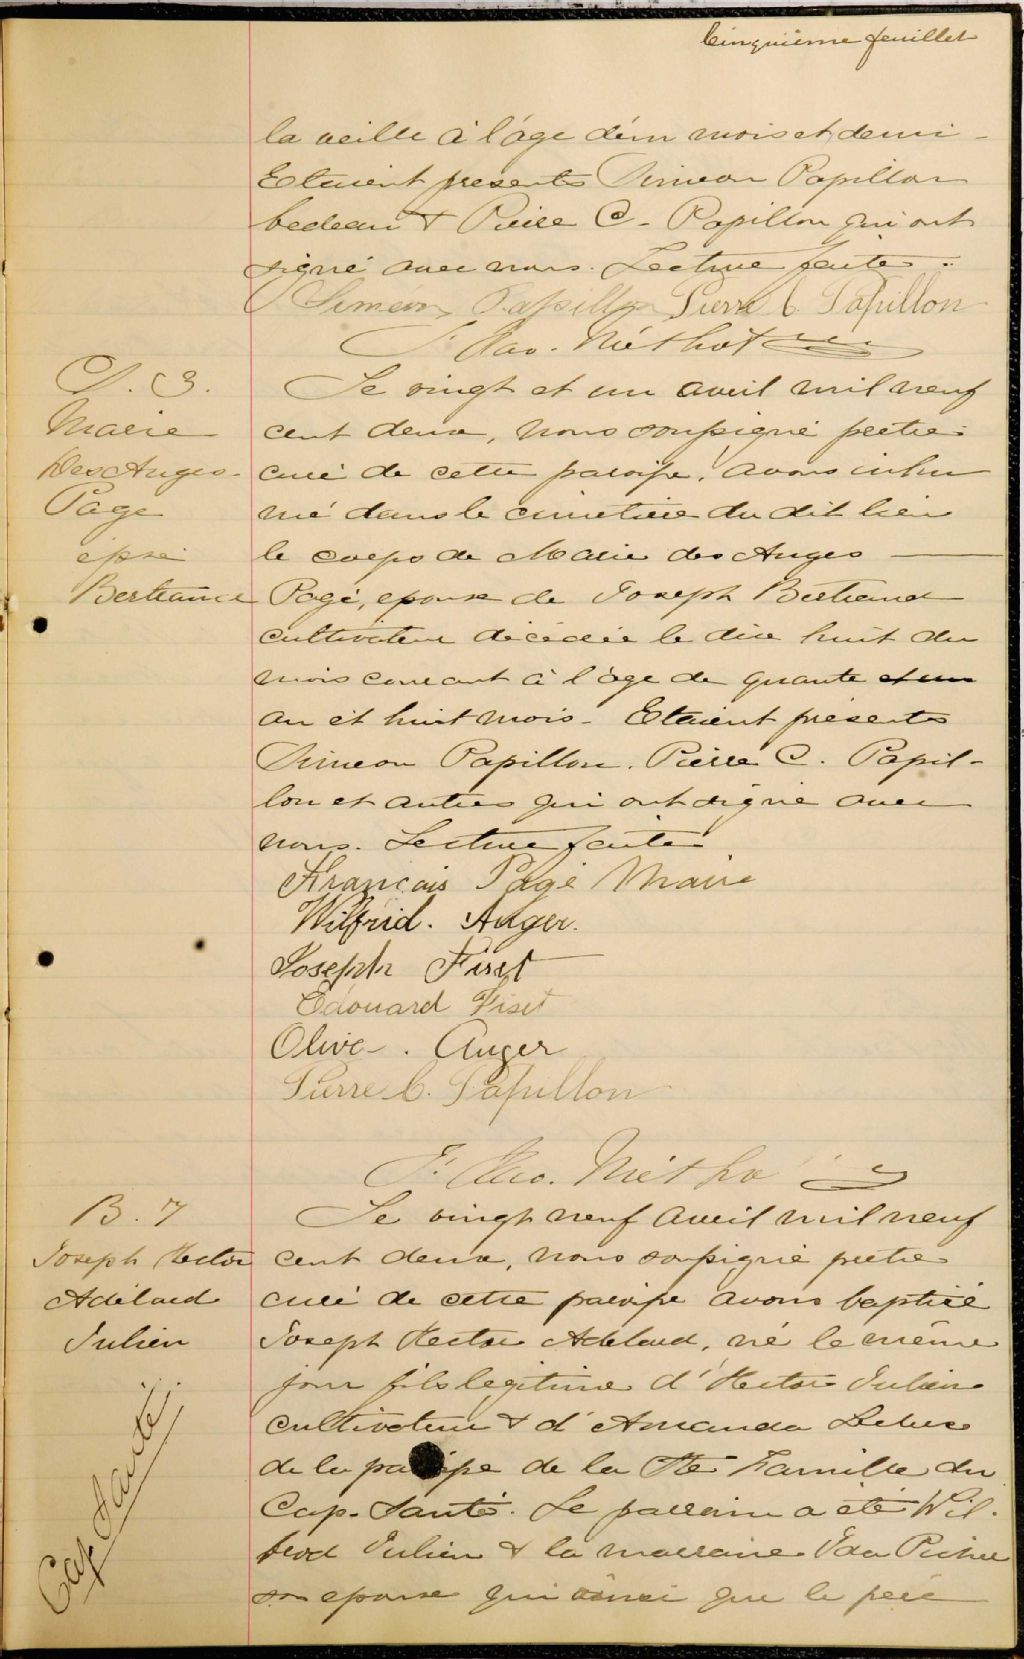 Cinquième feuillet
la veille à l'âge d'un mois et demi -
Etaient presents Simeon Papillon
bedeau & Pierre C - Papillon qui ont
signé avec nous. Lecture faite.
Simeon Papillon Pierre C Papillon
Nau. Méthot
S. 3.
Marie
Des Anges
Page
épse
Bertrand
Le vingt et un avril mil neuf
cent deux, nous soussigné pretre
curé de cette paroisse, avons inhu
mé dans le cimetière du dit lieu
le corps de Marie des Anges
Pagé, epouse de Joseph Bertrand
cultivateur décédée le dix huit du
mois courant à l'âge de quante et un
an et huit mois - Etaient présents
Simeon Papillon. Pierre C. Papil-
lon et autres qui ont signé avec
nous. Lecture faite
François Pagé Maire
Wilfrid. Auger.
Joseph Fiset
Edouard Fiset
Olive - . Auger
Pierre C. Papillon
B. 7
Joseph Hector
Adélard
Julien
Cap Santé.
Le vingt neuf avril mil neuf
cent deux, nous soussigné pretre
curé de cette paroisse avons baptisé
Joseph Hector Adelard, né le même
jour fils legitime d'Hector Julien
cultivateur & d'Amanda
de la paroisse de la Ste Famille du
Cap-Santé. Le parrain a été Wil-
brod Julien & la marraine Ida Piché
son epouse qui ainsi que le père